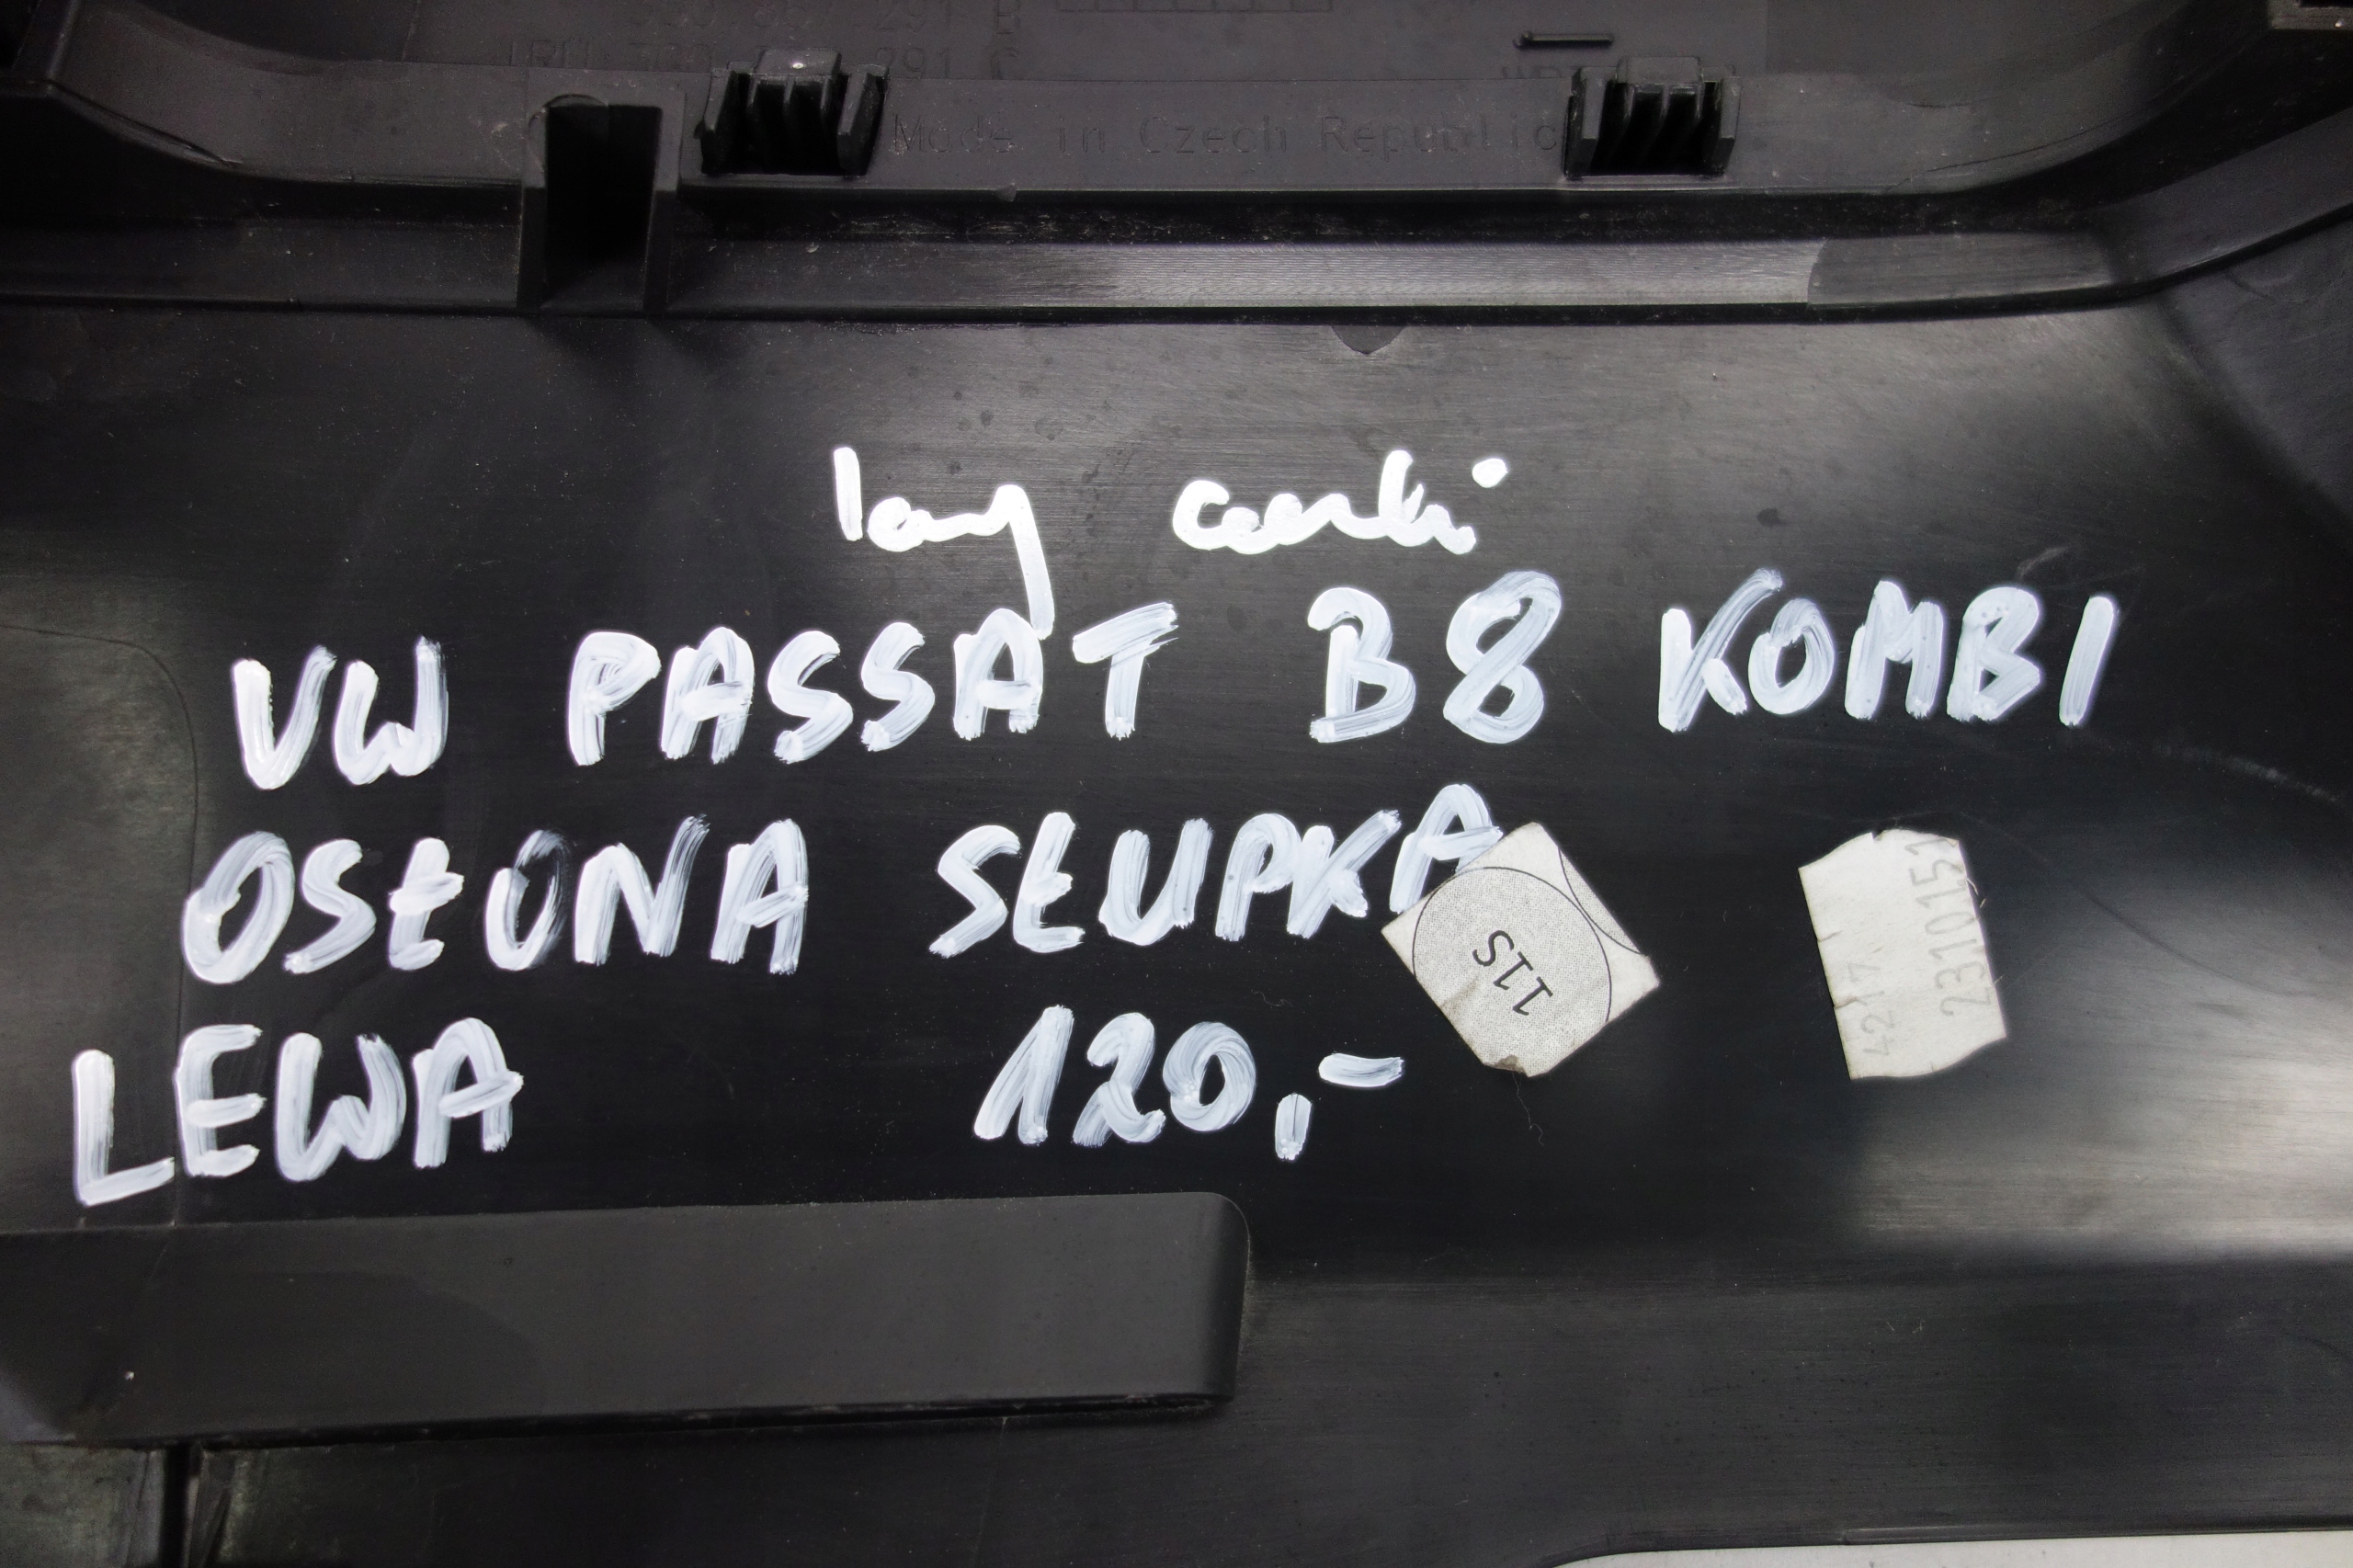 Made in Czech Republic
VW PASSAT B8 KOMBI
OSŁONA SŁUPKA
LEWA 120,-
11S
4217
231015